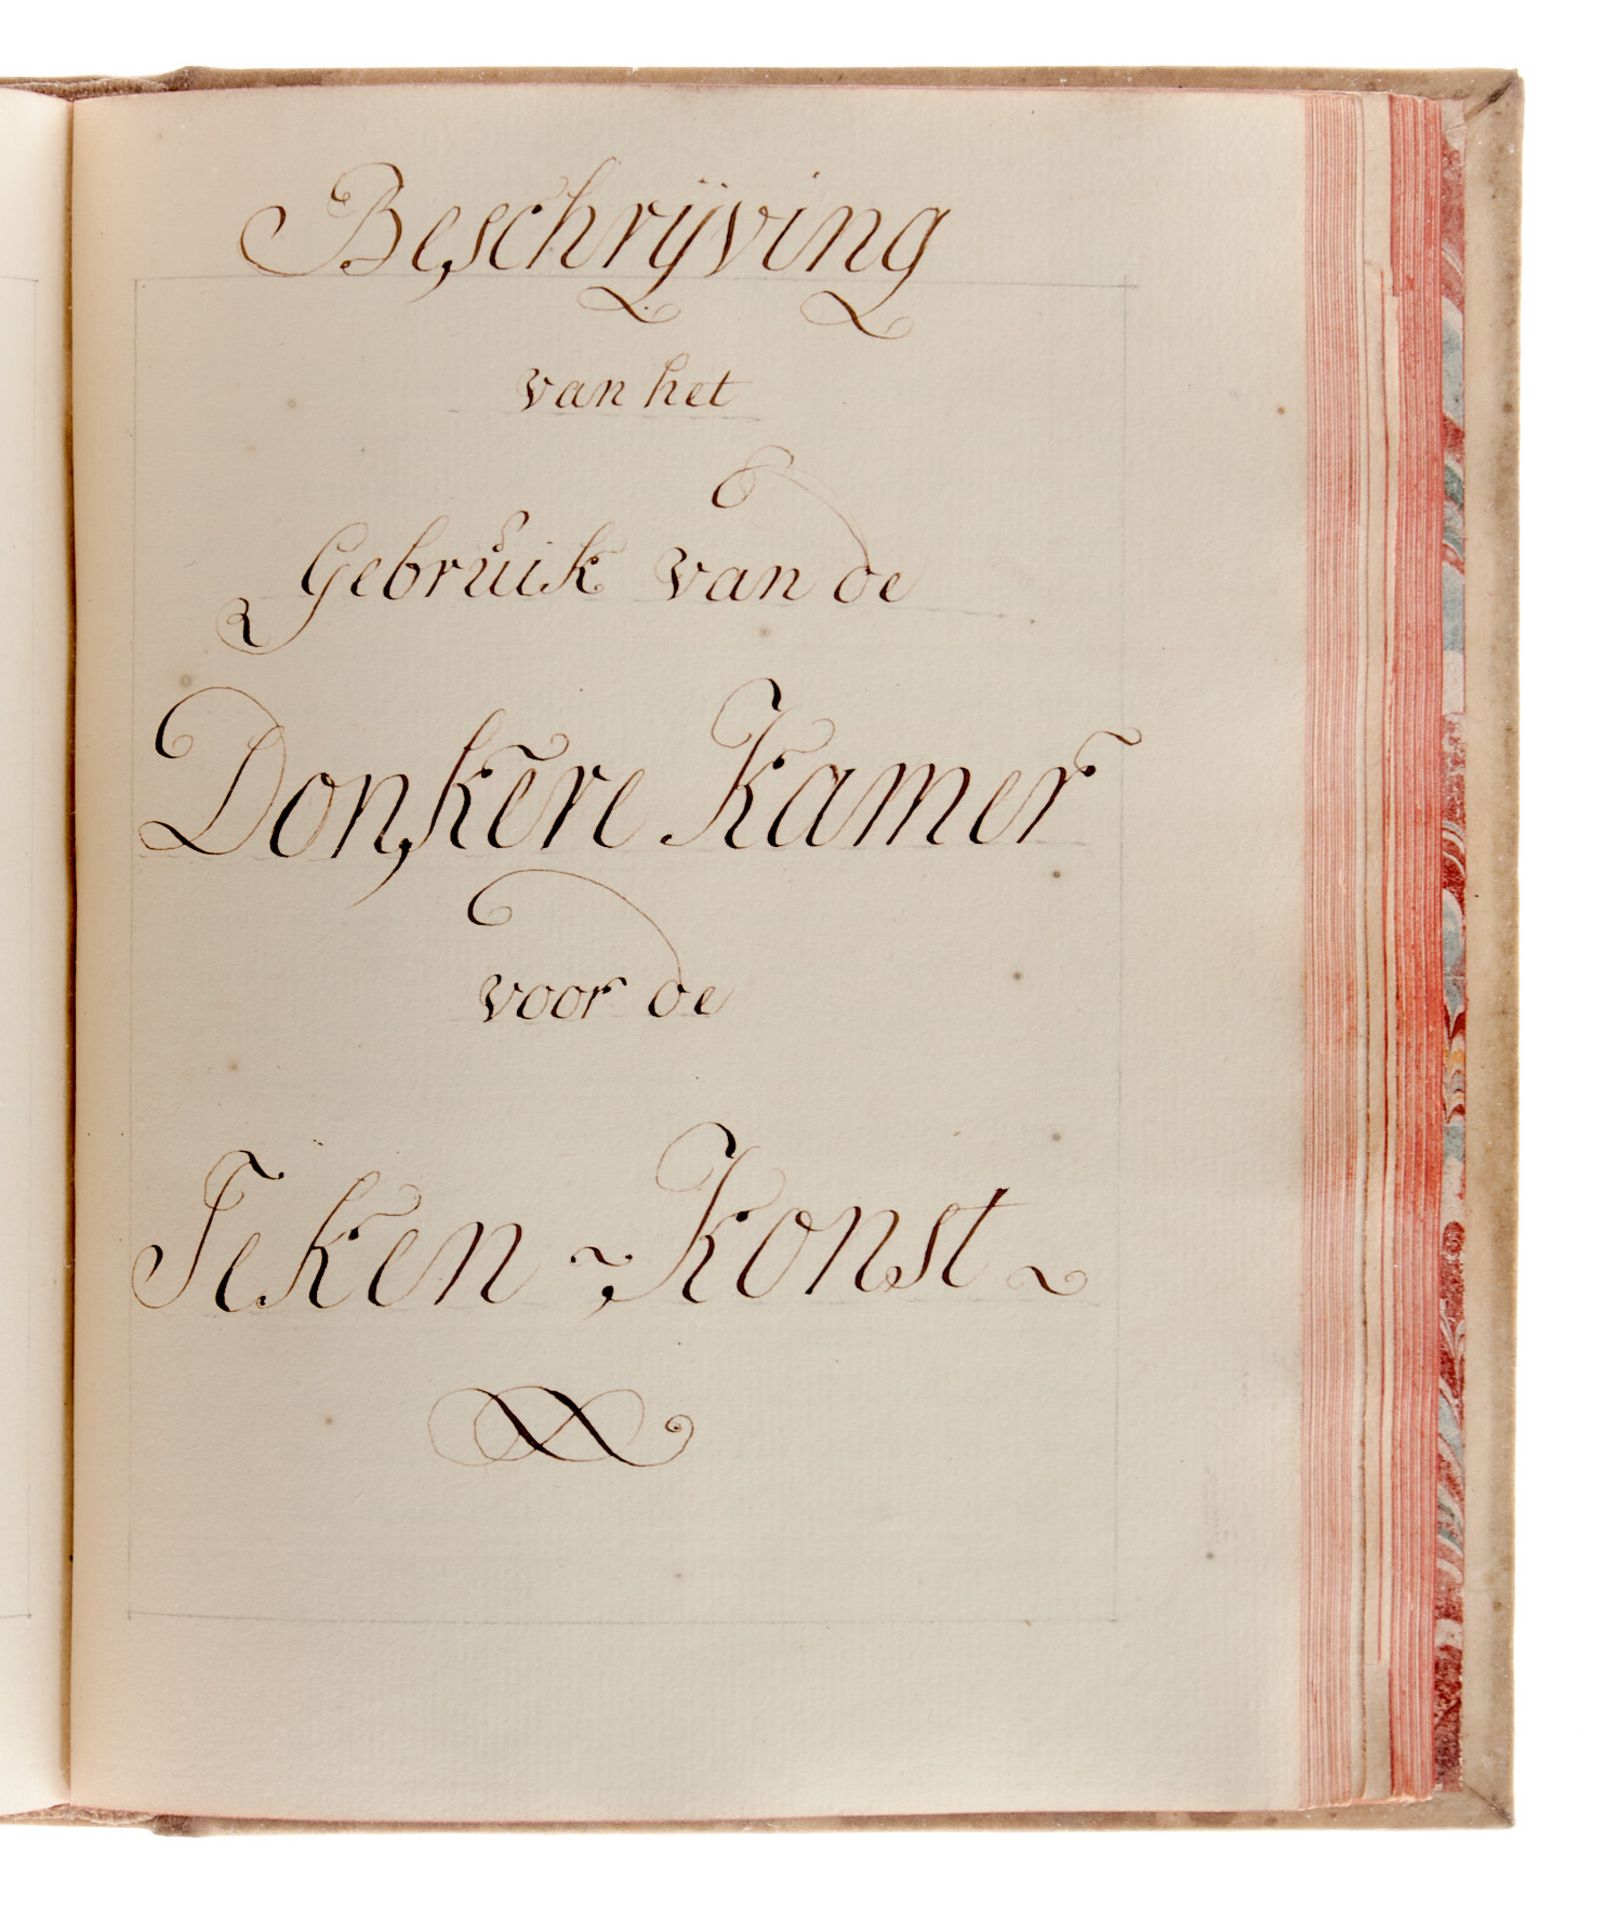 Beschrijving
van het
Gebruik van de
Donkere Kamer
voor de
Teken-Konst